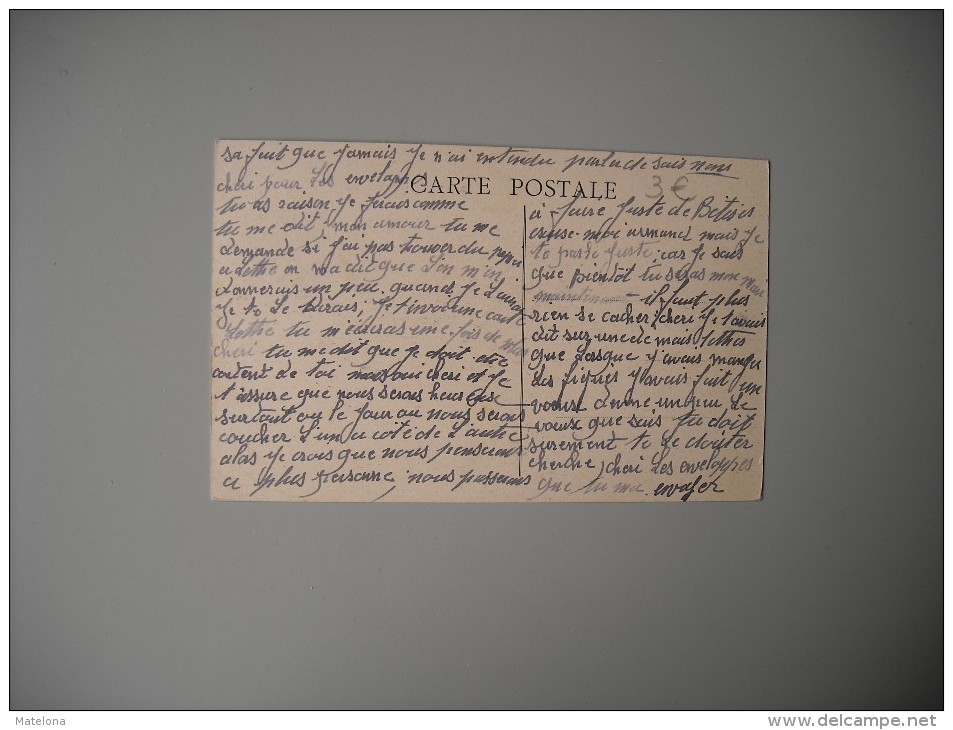 sa fait que jamais je n'ai entendu parler de sais nous
cheri pour les enveloppes
CARTE POSTALE
3 €
tu as raison je ferais comme
tu me dit, mon amour tu me
demande si j'ai pas trouver du
a Lethe on m'a dit que l'on m'en
donnerais un peu quand je
je te le dirais, je t'envoi une carte
tu m'ecriras une fois de plus
cheri tu me dit que je doit etre
content de toi mais oui cheri et je
t'assure que nous serons heureuse
surtout ou le jour ou nous serons
coucher l'un a coté de l'autre
alas je crois que nous penserons
a plus personne, nous passerons
a faire juste de Betises
excuse-moi armand mais je
te parle juste, car je sais
que bientôt tu seras mon mari
il faut plus
rien se cacher, cheri je t'avais
dit sur une de mais lethes
que lorsque j'avais manger
des figues j'avais fait un
voeux devine un peu le
voeux que sais tu doit
surement te le douter
cherche, cheri les enveloppes
que tu ma envoyer
Matelona
http://www.delcampe.net